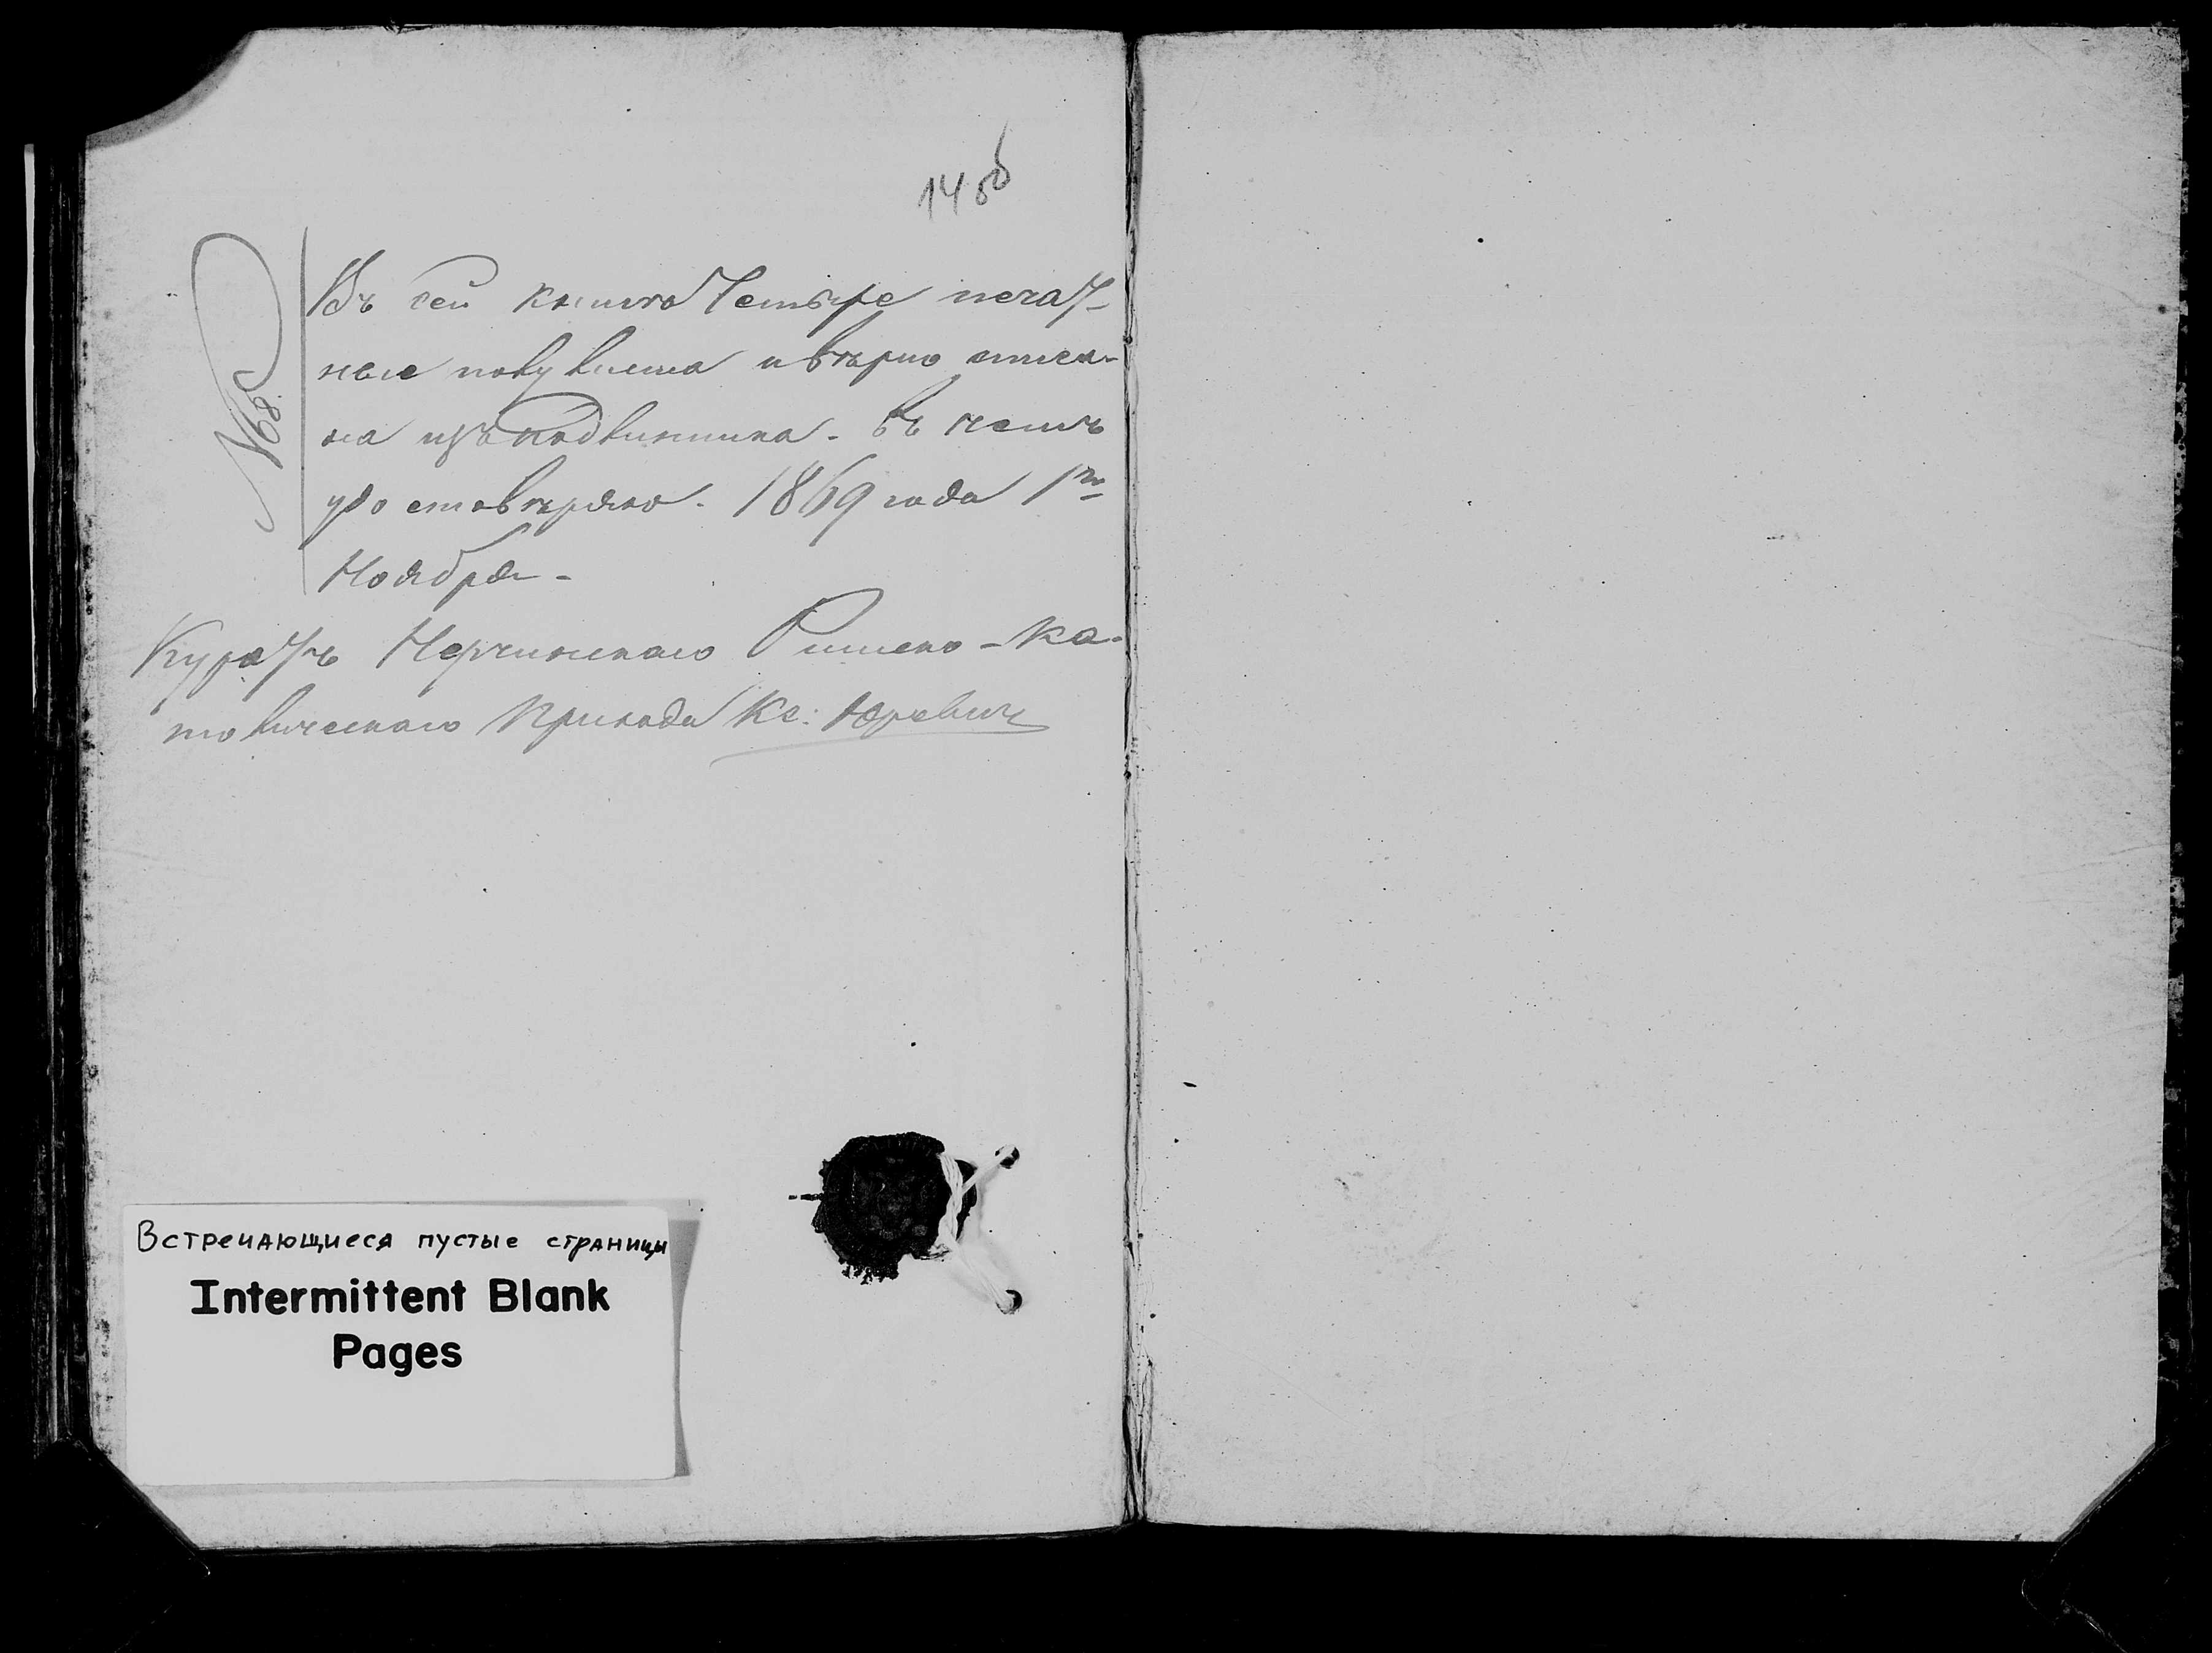 14 об
№ 8.
Въ сей книгѣ Четыре печат-
ные полулиста и вѣрно списа-
на изъ подлинника. въ чемъ
удостовѣряю. 1869 года 1го
Ноября-
Куратъ Нерчинскаго Римско-ка-
толическаго Прихода Кс: Юревич
Встречающиеся пустые страницы
Intermittent Blank
Pages